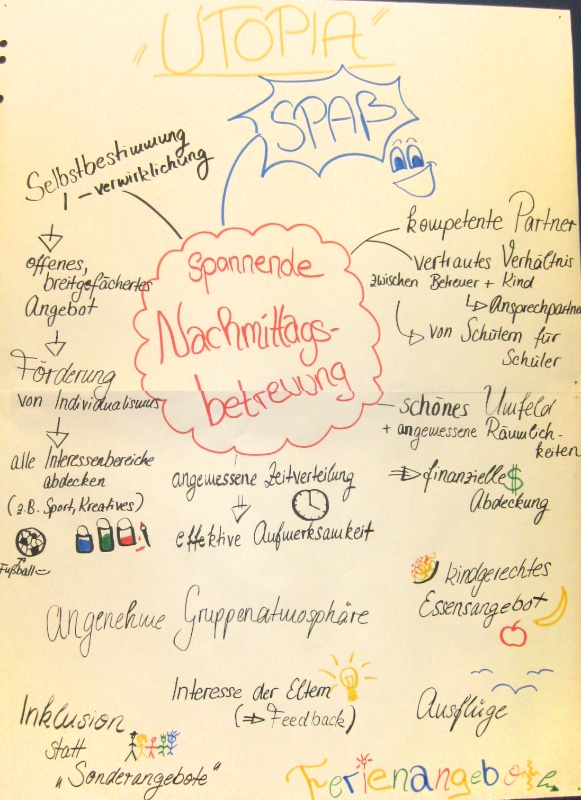 „UTOPIA“
SPAẞ
Selbstbestimmung
- verwirklichung
offenes,
breitgefächertes
Angebot
Förderung
von Individualismus
alle Interessenbereiche
abdecken
(z.B. Sport, Kreatives)
Fußball
spannende
Nachmittags-
betreuung
kompetente Partner
vertrautes Verhältnis
zwischen Betreuer + Kind
Ansprechpartner
von Schülern für
Schüler
schönes Umfeld
+ angemessene Räumlich-
keiten
finanzielle $
Abdeckung
angemessene Zeitverteilung
effektive Aufmerksamkeit
kindgerechtes
Essensangebot
Angenehme Gruppenatmosphäre
Interesse der Eltern
(⇒ Feedback)
Ausflüge
Inklusion
statt
„Sonderangebote“
Ferienangebote